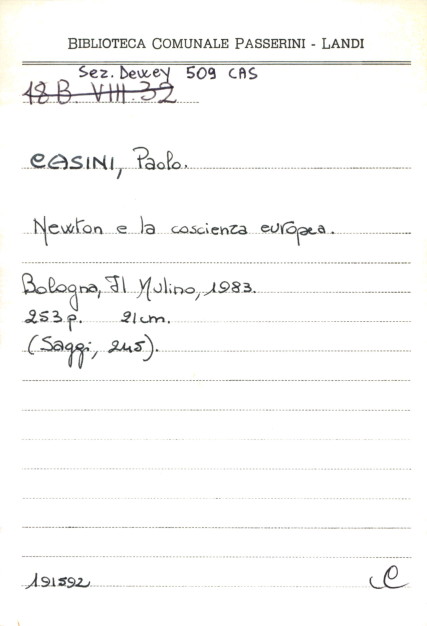 BIBLIOTECA COMUNALE PASSERINI - LANDI
Sez. Dewey 509 CAS
18 B. VIII. 32
CASINI, Paolo.
Newton e la coscienza europea.
Bologna, Il Mulino, 1983.
253 p. 21 cm.
(Saggi, 245).
191592 C